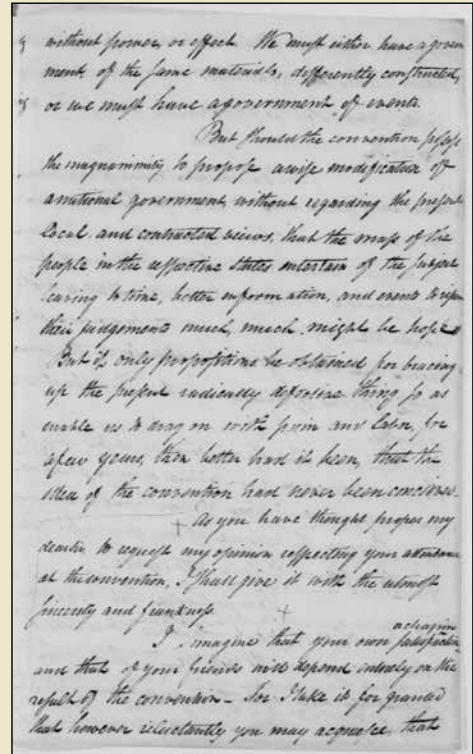 without power, or effect. We must either have a govern
ment, of the same materials, differently constructed,
or we must have a government of events.
But should the convention possess
the magnanimity to propose a wise modification of
a national government, without regarding the present
local and contracted views, that the mass of the
people in the respective states entertain of the subject
leaving to time, better information, and events to ripen
their judgements much, much might be hoped
But if only propositions be obtained for bracing
up the present radically defective thing so as
enable us to drag on with pain and labor, for
a few years, then better had it been, that the
idea of the convention had never been conceived.
+ As you have thought proper my
dear sir to request my opinion respecting your attendance
at the convention, I shall give it with the utmost
sincerity and frankness.
+
I imagine that your own satisfaction
and that of your friends will depend entirely on the
result of the convention – For I take it for granted
that however reluctantly you may acquiesce, that